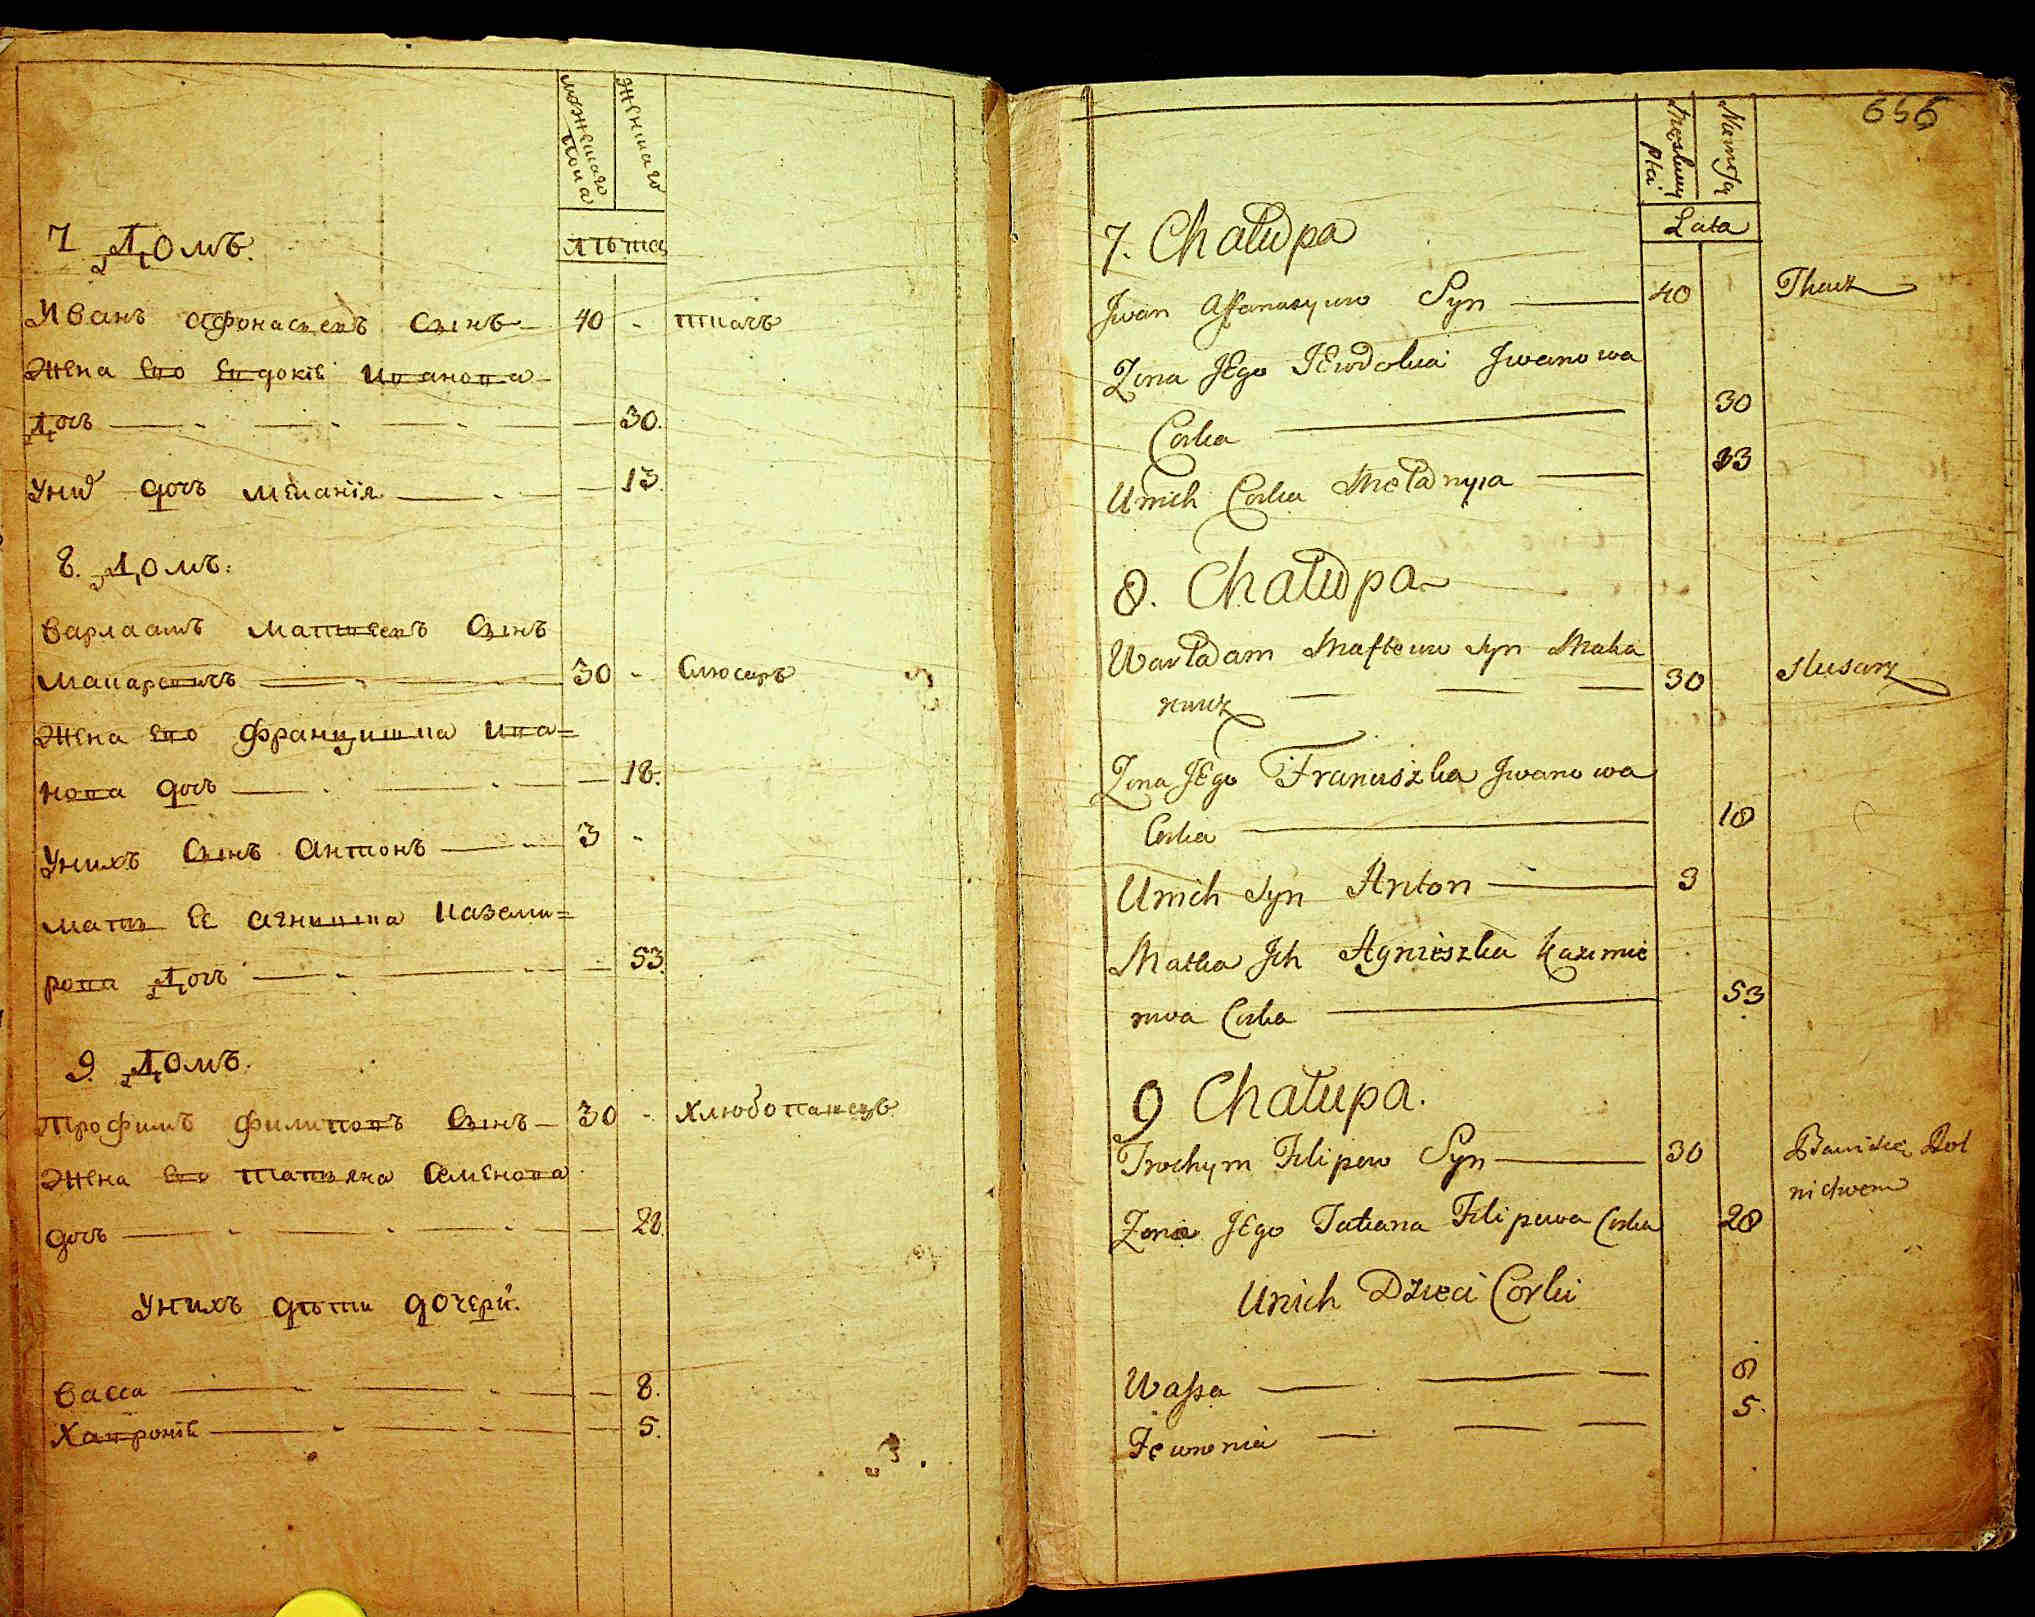 мужескаго пола
женскаго
лѣта
7 Домъ.
Иванъ Афонасьевъ Сынъ — 40 - ткачъ
Жена Его Евдокіѣ Иванова
Дочь — 30.
Униⷯ дочъ Меланія — 13.
8. Домъ.
Варлаамъ Матвѣевъ Сынъ
Макаревичъ — 30 - Слюсаръ
Жена Его Францишка Ива=
нова дочъ — 18.
Унихъ Сынъ Антонъ — 3 -
Мать Ее Агнишка Каземи=
рова Дочъ — 53.
9. Домъ.
Трофимъ Филиповъ Сынъ — 30 - Хлюбопашецъ
Жена Его Татьяна Семенова
дочъ — 28.
Унихъ дѣти дочери.
Васса — 8.
Хавроніѣ — 5.
656
Męskiey Płci
Niewiesciey
Lata
7. Chałupa
Jwan Affanasyuw Syn — 40 Tkacz
Zona JEgo JEwdokia Jwanowa
Corka — 30
Unich Corka Mełanyia — 13
8. Chałupa
Warłaam Mafteuw Syn Maka
rewicz — 30 Slusarz
Zona JEgo Franciszka Jwanowa
Corka — 18
Unich Syn Anton — 3
Matka Jch Agnieszka Kazimie
rowa Corka — 53
9 Chałupa.
Trochym Filipow Syn — 30 Bawi się Rol
nictwem
Zona JEgo Tatiana Filipowa Corka 28
Unich Dzieci Corki
Wassa — 8
Fewronia — 5.